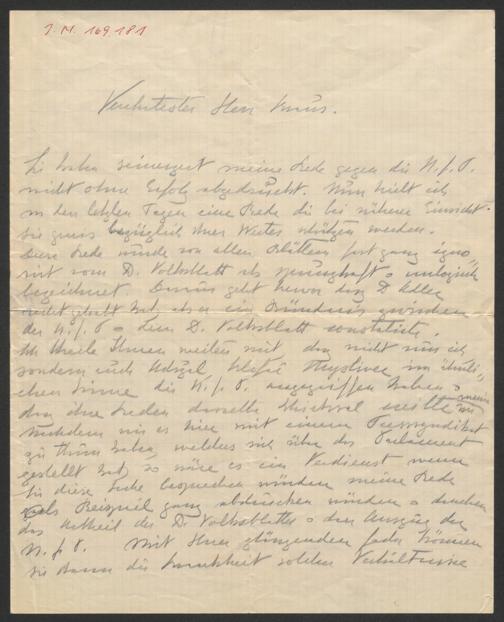 J.N. 169.181
Verehrtester Herr Kraus.
Sie haben seinerzeit meine Rede gegen die N. f. P.
nicht ohne Erfolg abgedruckt. Nun hielt ich
in den letzten Tagen eine Rede die bei näherer Einsicht
Sie gewiss bezüglich ihres Wertes schätzen werden.
Diese Rede wurde von allen Blättern fast ganz igno-
rirt vom D. Volksblatt als sprunghaft u unlogisch
bezeichnet. Daraus geht hervor dass D Adler
recht gehabt hat, als er ein Bündniss zwischen
der N. f. P. u dem D. Volksblatt constatirte.
Ich theile Ihnen weiters mit, dass nicht nur ich
sondern auch
chen Sinne die N. f. P. angegriffen haben u
dass ihre Reden dasselbe Schicksal meine
Nachdem wir es hier mit einem
zu thun haben, welches sich über das Parlament
gestellt hat, so wäre es ein Verdienst wenn
Sie diese Sache besprechen würden meine Rede
als Beispiel ganz abdrucken würden u daneben
das Urtheil des D. Volksblattes u den Auszug der
N. f. P. Mit Ihrer glänzenden Feder können
Sie dann die Krankheit solcher Verhältnisse